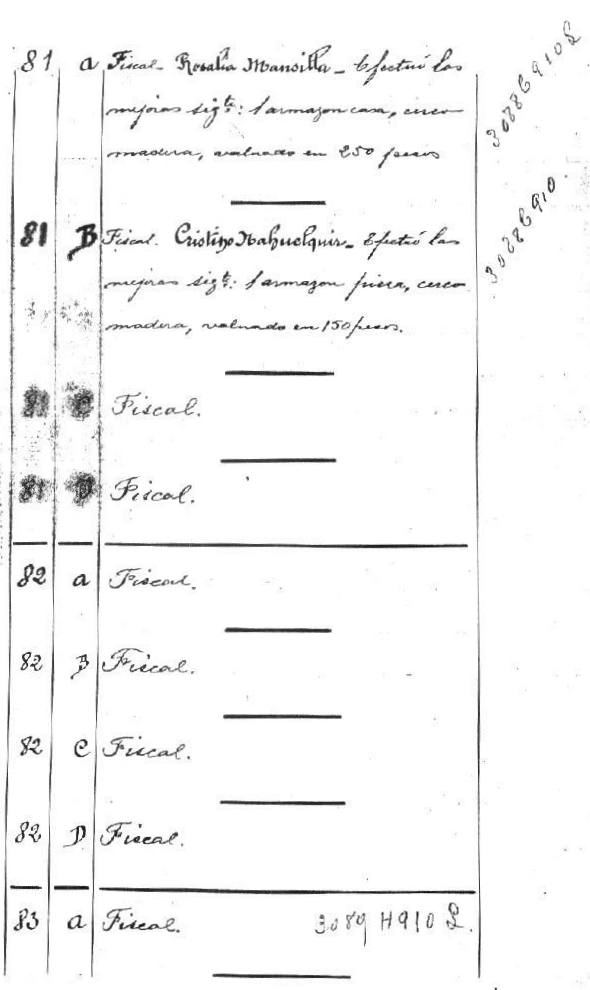 81 a Fiscal - Rosalia Mansilla - Efectuó las
mejoras sigte: 1 armazon casa, cerco
madera, valuado en 250 pesos
3088 G 910 L
81 B Fiscal. Cristino Nahuelquir - Efectuó las
mejoras sigte: 1 armazon pieza, cerco
madera, valuado en 150 pesos.
3088 G 910.
81 C Fiscal.
81 D Fiscal.
82 a Fiscal.
82 B Fiscal.
82 C Fiscal.
82 D Fiscal.
83 a Fiscal. 3089 H 910 L.